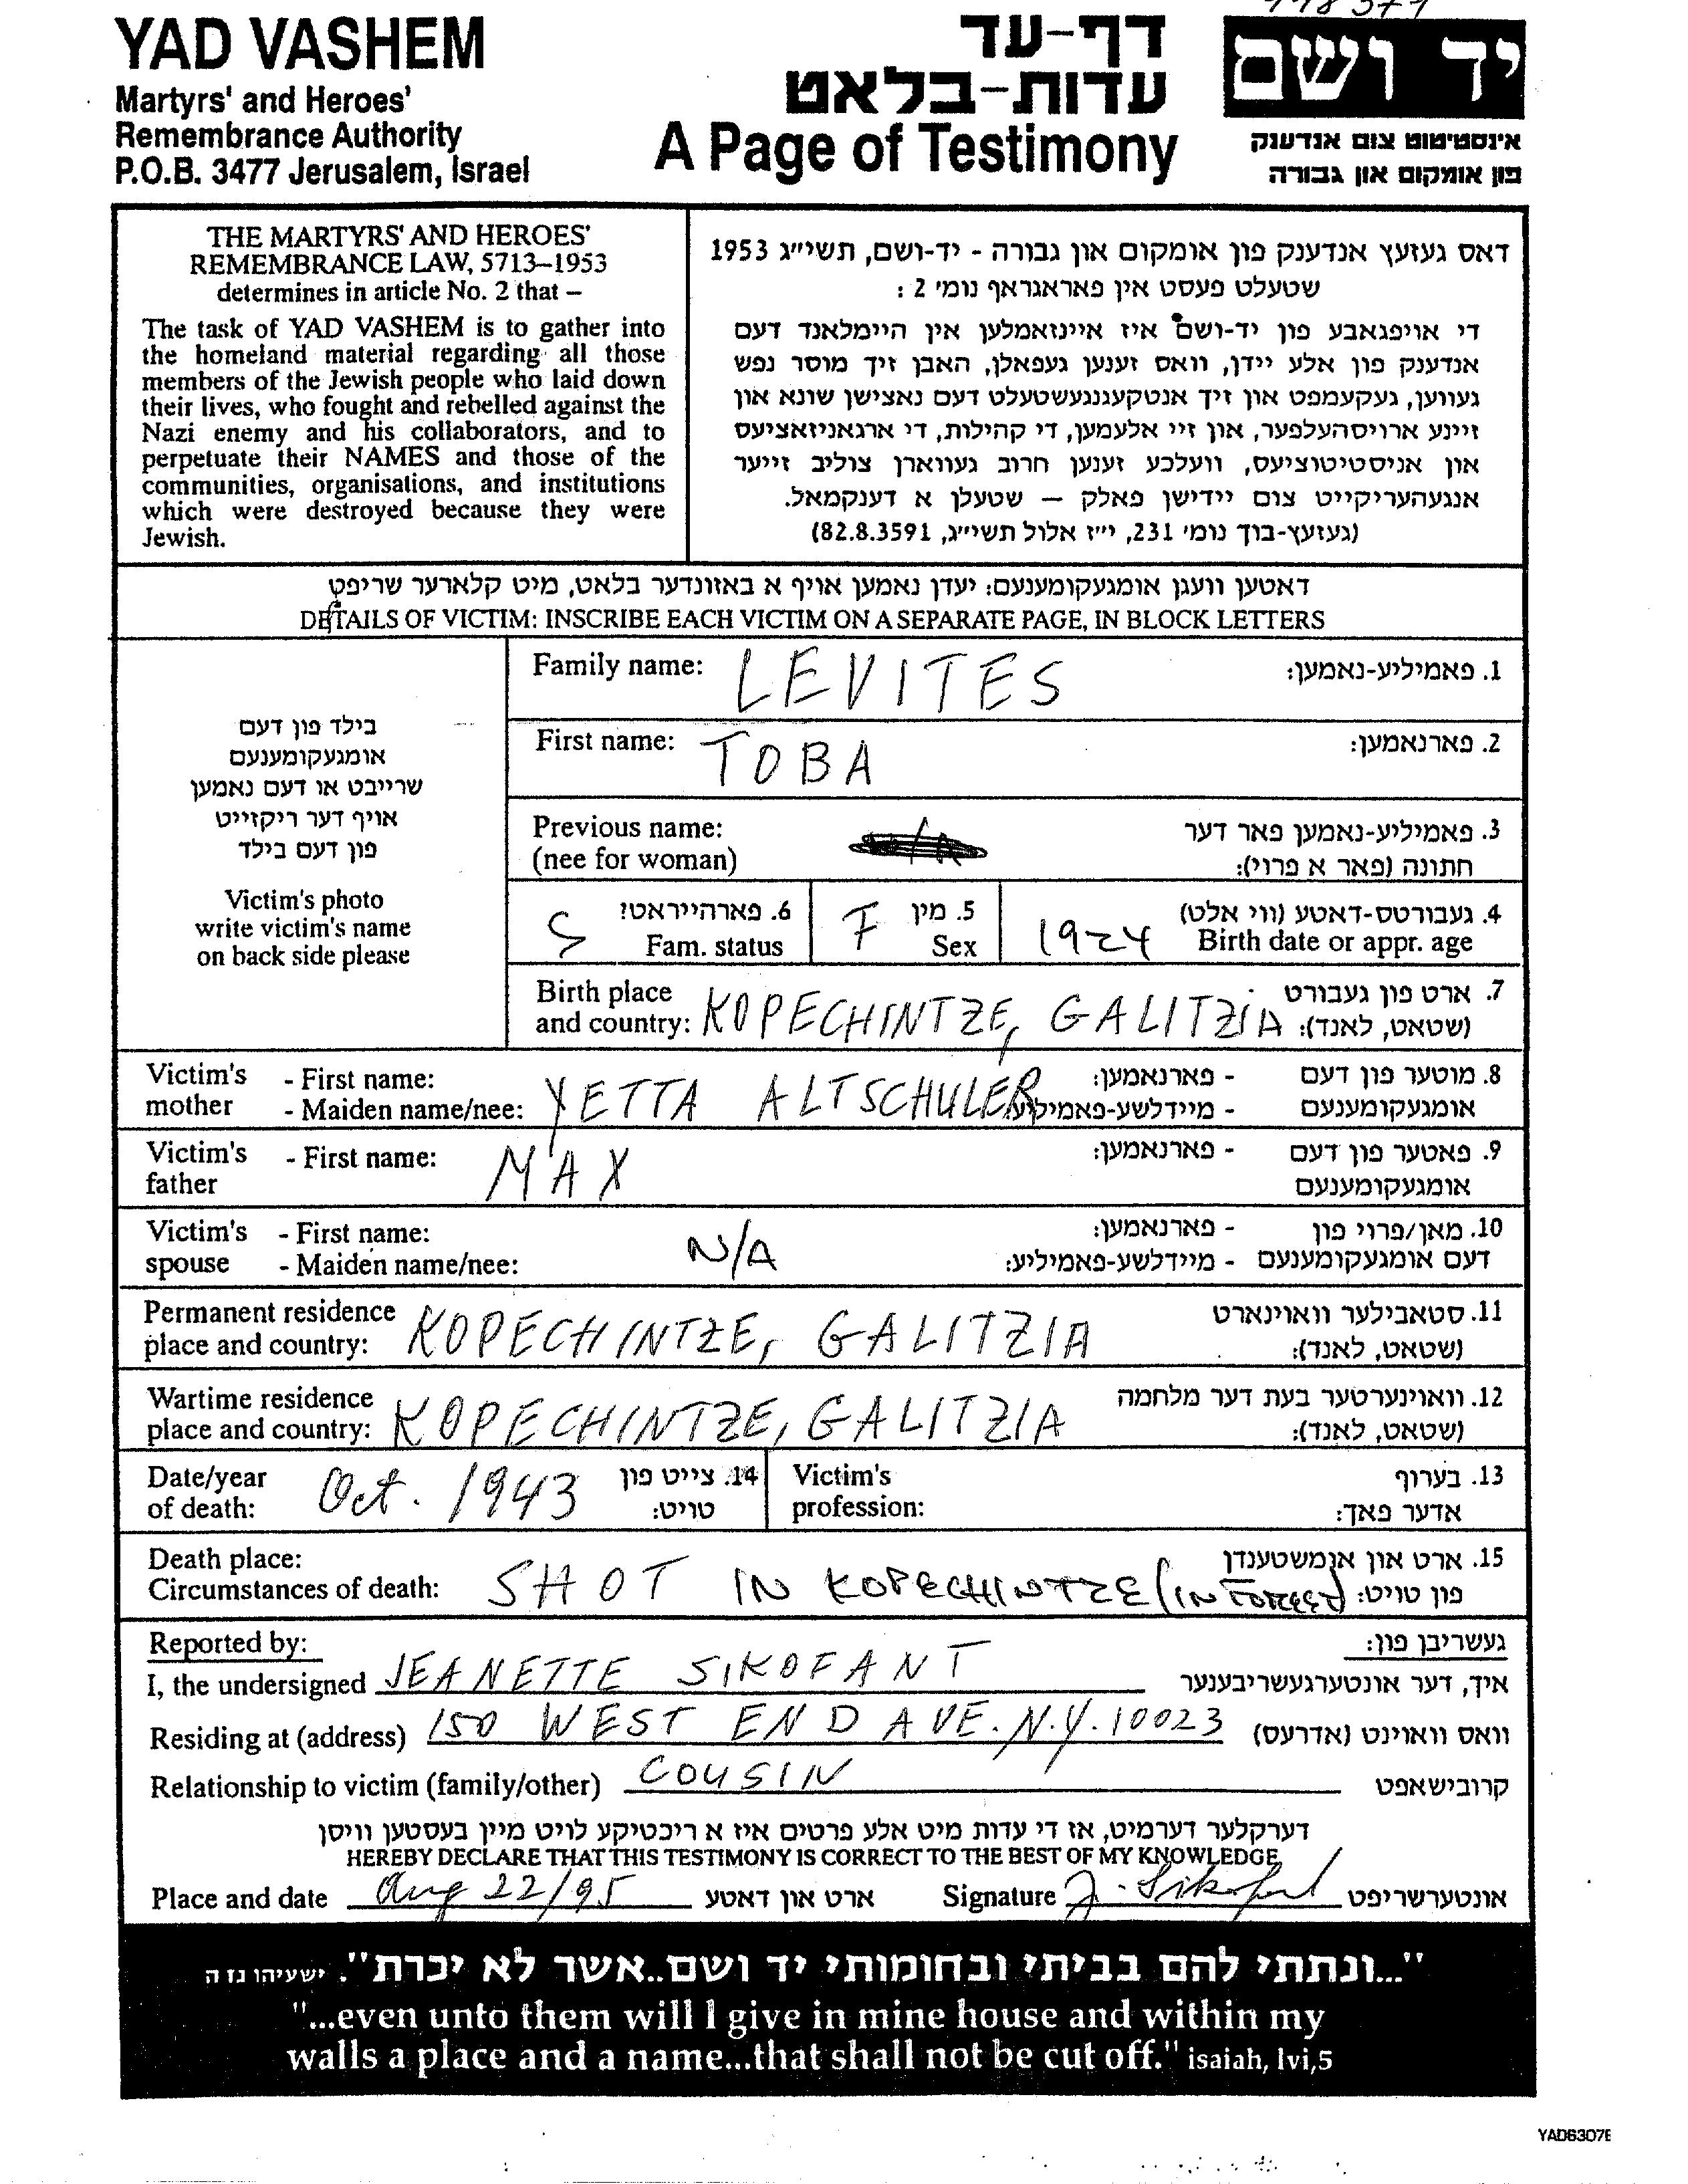 YAD VASHEM
Martyrs' and Heroes'
Remembrance Authority
P.O.B. 3477 Jerusalem, Israel
דף-עד
עדות-בלאט
A Page of Testimony
יד ושם
אינסטיטוט צום אנדענק
פון אומקום און גבורה
THE MARTYRS' AND HEROES'
REMEMBRANCE LAW, 5713–1953
determines in article No. 2 that –
The task of YAD VASHEM is to gather into
the homeland material regarding all those
members of the Jewish people who laid down
their lives, who fought and rebelled against the
Nazi enemy and his collaborators, and to
perpetuate their NAMES and those of the
communities, organisations, and institutions
which were destroyed because they were
Jewish.
דאס געזעץ אנדענק פון אומקום און גבורה - יד-ושם, תשי״ג 1953
שטעלט פעסט אין פאראגראף נומ׳ 2 :
די אויפגאבע פון יד-ושם איז איינזאמלען אין היימלאנד דעם
אנדענק פון אלע יידן, וואס זענען געפאלן, האבן זיך מוסר נפש
געווען, געקעמפט און זיך אנטקעגנגעשטעלט דעם נאצישן שונא און
זיינע ארויסהעלפער, און זיי אלעמען, די קהילות, די ארגאניזאציעס
און אניסטיטוציעס, וועלכע זענען חרוב געווארן צוליב זייער
אנגעהעריקייט צום יידישן פאלק – שטעלן א דענקמאל.
(געזעץ-בוך נומ׳ 231, י״ז אלול תשי״ג, 82.8.3591)
דאטען וועגן אומגעקומענעם: יעדן נאמען אויף א באזונדער בלאט, מיט קלארער שריפט
DETAILS OF VICTIM: INSCRIBE EACH VICTIM ON A SEPARATE PAGE, IN BLOCK LETTERS
בילד פון דעם
אומגעקומענעם
שרייבט או דעם נאמען
אויף דער ריקזייט
פון דעם בילד
Victim's photo
write victim's name
on back side please
Family name: LEVITES 1. פאמיליע-נאמען:
First name: TOBA 2. פארנאמען:
Previous name: 3. פאמיליע-נאמען פאר דער
(nee for woman) חתונה (פאר א פרוי):
S 6. פארהייראט? F 5. מין 1924 4. געבורטס-דאטע (ווי אלט)
Fam. status Sex Birth date or appr. age
Birth place 7. ארט פון געבורט
and country: KOPECHINTZE, GALITZIA (שטאט, לאנד):
Victim's - First name: - פארנאמען: 8. מוטער פון דעם
mother - Maiden name/nee: YETTA ALTSCHULER - מיידלשע-פאמיליע: אומגעקומענעם
Victim's - First name: MAX - פארנאמען: 9. פאטער פון דעם
father אומגעקומענעם
Victim's - First name: N/A - פארנאמען: 10. מאן/פרוי פון
spouse - Maiden name/nee: - מיידלשע-פאמיליע: דעם אומגעקומענעם
Permanent residence 11. סטאבילער וואוינארט
place and country: KOPECHINTZE, GALITZIA (שטאט, לאנד):
Wartime residence 12. וואוינערטער בעת דער מלחמה
place and country: KOPECHINTZE, GALITZIA (שטאט, לאנד):
Date/year Oct. 1943 14. צייט פון Victim's 13. בערוף
of death: טויט: profession: אדער פאך:
Death place: 15. ארט און אומשטענדן
Circumstances of death: SHOT IN KOPECHINTZE (IN FOREST) פון טויט:
Reported by: געשריבן פון:
I, the undersigned JEANETTE SIKOFANT איך, דער אונטערגעשריבענער
Residing at (address) 150 WEST END AVE. N.Y. 10023 וואס וואוינט (אדרעס)
Relationship to victim (family/other) COUSIN קרובישאפט
דערקלער דערמיט, אז די עדות מיט אלע פרטים איז א ריכטיקע לויט מיין בעסטען וויסן
HEREBY DECLARE THAT THIS TESTIMONY IS CORRECT TO THE BEST OF MY KNOWLEDGE
Place and date Aug 22/95 ארט און דאטע Signature J. Sikofant אונטערשריפט
"...ונתתי להם בביתי ובחומותי יד ושם..אשר לא יכרת". ישעיהו נז ה
"...even unto them will I give in mine house and within my
walls a place and a name...that shall not be cut off." isaiah, lvi,5
YAD6307E